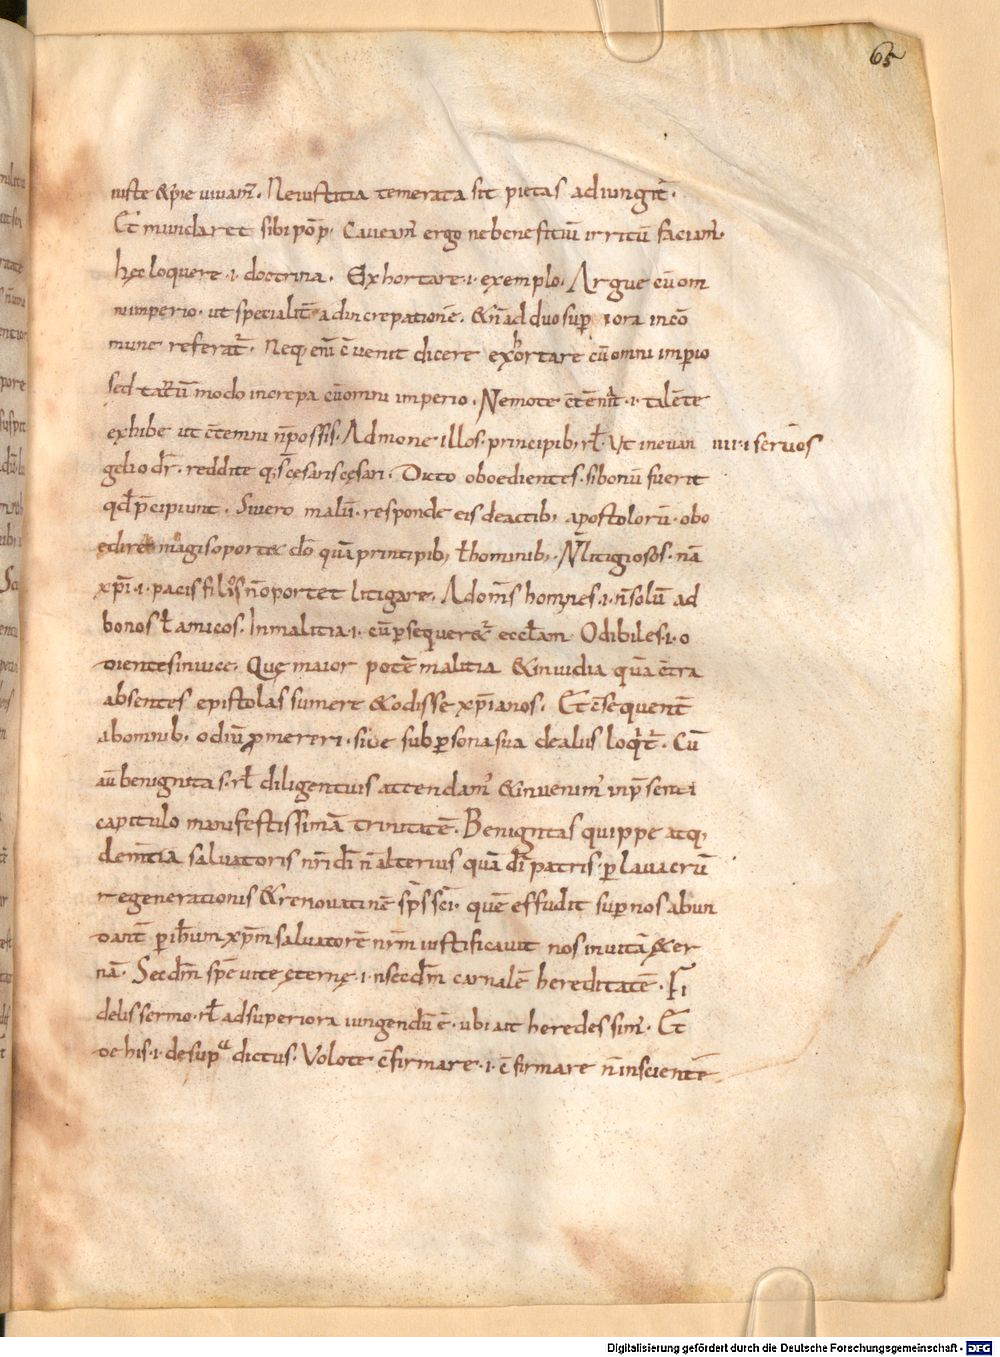 65
iuste &pie uiuam̄. Neiustitia temerata sit pietas adiungit᷑.
Et mundaret sibi pōp̄. Caueam̄ ergo nebeneficiū irritū faciam̄.
hęc loquere .i. doctrina. Exhortare .i. exemplo. Argue cū om
ni imperio. ut specialit̄ adincrepationē. &n̄ ad duo sup̄iora incō
mune referat᷑. Neq; enī c̄uenit dicere exhortare cū omni imꝑio
sed tantū modo increpa cū omni imperio. Nemo te c̄tēnat .i. talē te
exhibe ut c̄temni n̄ possis. Admone illos. principib; ꝉ. Ut in euan
gelio dr̄. reddite q; s̄ cesaris cęsari. Dicto oboedientes. si bonū fuerit
nn̄ .i. seruos
qd̄ p̄cipiunt. Si uero malū. responde eis de actib; apostolorū. obo
edire magis oportet dō quā principib; ꝉ hominib;. N̄ litigiosos. nā
xp̄i .i. pacis filios n̄ oportet litigare. Ad om̄s homines .i. n̄ solū ad
bonos ꝉ amicos. In malitia .i. cū ꝑsequeret᷑ eccłam. Odibiles .i. o
dientes inuicē. Quę maior potē malitia &inuidia quā c̄tra
absentes epistolas sumere &odisse xp̄ianos. Et c̄sequent̄
ab omnib; odiū ꝓmereri. siue sub ꝑsona sua de aliis loqt᷑. Cū
aū benignitas. ꝉ diligentius attendam̄ &inuenim̄ in p̄senti
capitulo manifestissimā trinitatē. Benignitas quippe atq;
clem̄tia saluatoris nr̄i dī n̄ alterius quā dī patris. ꝑ lauacrū
regenerationis &renouatiōnē sp̄s scī. quē effudit sup nos abun
dant̄ ꝑ ihm xp̄m saluatorē nr̄m iustificauit nos in uitā &er
nā. Secdm̄ spē uitę ęternę .i. n̄ secdm̄ carnalē hereditatē. Fi
delis sermo. ꝉ ad superiora iungendū ē. ubi ait heredes sim̄. Et
de his .i. de supᵃdictus. Volo te c̄firmare .i. c̄firmare n̄ inscientē
Digitalisierung gefördert durch die Deutsche Forschungsgemeinschaft - DFG